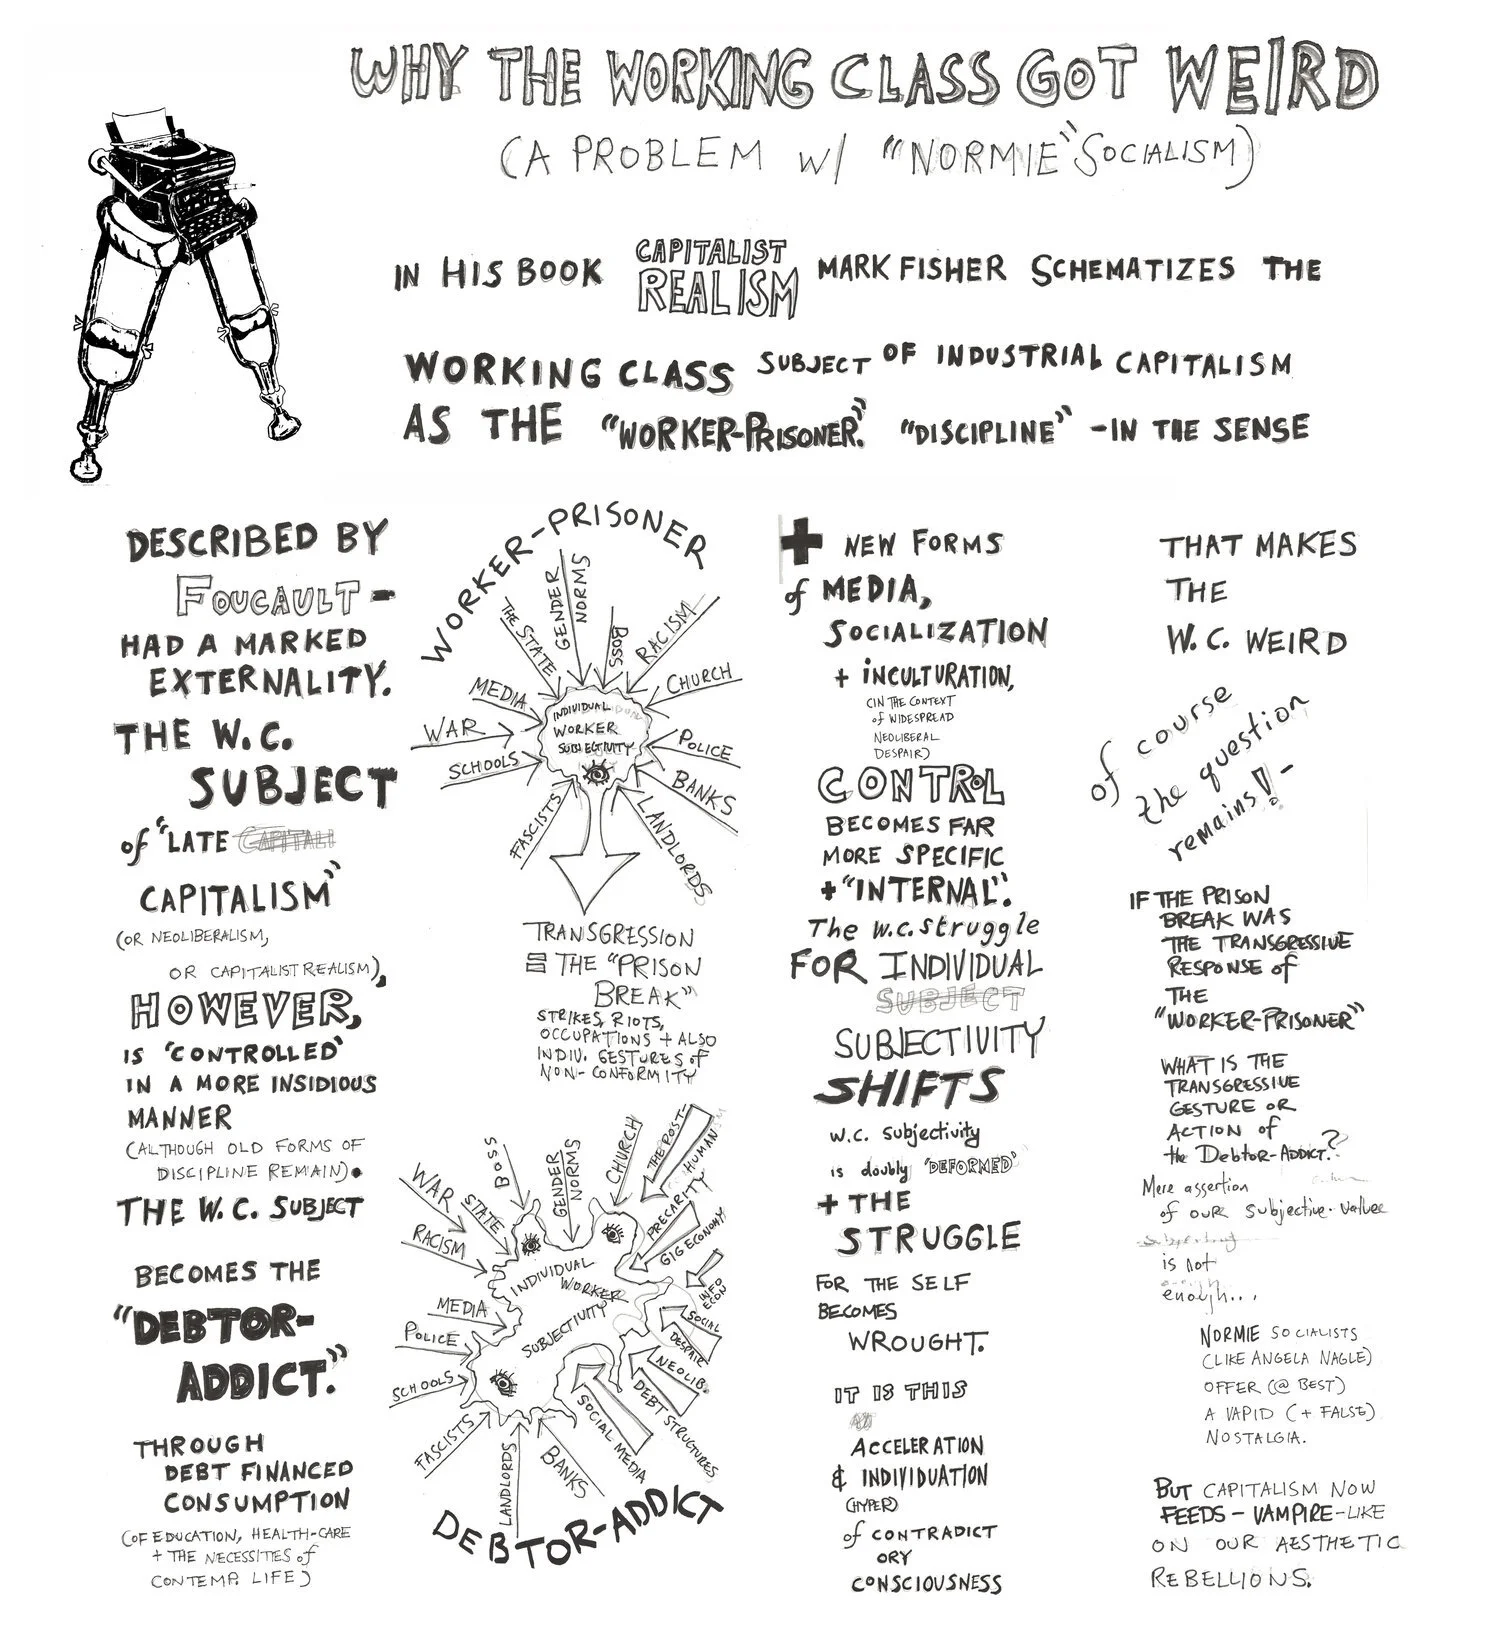 WHY THE WORKING CLASS GOT WEIRD
(A PROBLEM W/ "NORMIE" SOCIALISM)
IN HIS BOOK CAPITALIST REALISM MARK FISHER SCHEMATIZES THE
WORKING CLASS SUBJECT OF INDUSTRIAL CAPITALISM
AS THE "WORKER-PRISONER." "DISCIPLINE" - IN THE SENSE
DESCRIBED BY
FOUCAULT -
HAD A MARKED
EXTERNALITY.
THE W.C.
SUBJECT
of "LATE CAPITALI
CAPITALISM"
(OR NEOLIBERALISM,
OR CAPITALIST REALISM),
HOWEVER,
IS 'CONTROLLED'
IN A MORE INSIDIOUS
MANNER
(ALTHOUGH OLD FORMS OF
DISCIPLINE REMAIN).
THE W.C. SUBJECT
BECOMES THE
"DEBTOR-
ADDICT."
THROUGH
DEBT FINANCED
CONSUMPTION
(OF EDUCATION, HEALTH-CARE
+ THE NECESSITIES of
CONTEMP. LIFE)
WORKER-PRISONER
THE STATE
GENDER
NORMS
BOSS
RACISM
CHURCH
MEDIA
WAR
SCHOOLS
FASCISTS
POLICE
BANKS
LANDLORDS
INDIVIDUAL
WORKER
SUBJECTIVITY
TRANSGRESSION
= THE "PRISON
BREAK"
STRIKES, RIOTS,
OCCUPATIONS + ALSO
INDIV. GESTURES of
NON-CONFORMITY
BOSS
GENDER
NORMS
CHURCH
THE POST-
HUMAN
WAR
STATE
RACISM
PRECARITY
GIG ECONOMY
INFO
ECON
MEDIA
POLICE
SCHOOLS
INDIVIDUAL
WORKER
SUBJECTIVITY
SOCIAL
DESPAIR
NEOLIB.
DEBT STRUCTURES
SOCIAL MEDIA
FASCISTS
LANDLORDS
BANKS
DEBTOR-ADDICT
+ NEW FORMS
of MEDIA,
SOCIALIZATION
+ INCULTURATION,
(IN THE CONTEXT
of WIDESPREAD
NEOLIBERAL
DESPAIR)
CONTROL
BECOMES FAR
MORE SPECIFIC
+ "INTERNAL".
The w.c. struggle
FOR INDIVIDUAL
SUBJECT
SUBJECTIVITY
SHIFTS
w.c. subjectivity
is doubly 'DEFORMED'
+ THE
STRUGGLE
FOR THE SELF
BECOMES
WROUGHT.
IT IS THIS
ACCELERATION
& INDIVIDUATION
(HYPER)
of CONTRADICT
ORY
CONSCIOUSNESS
THAT MAKES
THE
W.C. WEIRD
of course
the question
remains! -
IF THE PRISON
BREAK WAS
THE TRANSGRESSIVE
RESPONSE of
THE
"WORKER-PRISONER"
WHAT IS THE
TRANSGRESSIVE
GESTURE OR
ACTION of
the Debtor-ADDICT?
Mere assertion
of our subjective values
is not
enough...
NORMIE SOCIALISTS
(LIKE ANGELA NAGLE)
OFFER (@ BEST)
A VAPID (+ FALSE)
NOSTALGIA.
BUT CAPITALISM NOW
FEEDS - VAMPIRE-LIKE
ON OUR AESTHETIC
REBELLIONS.